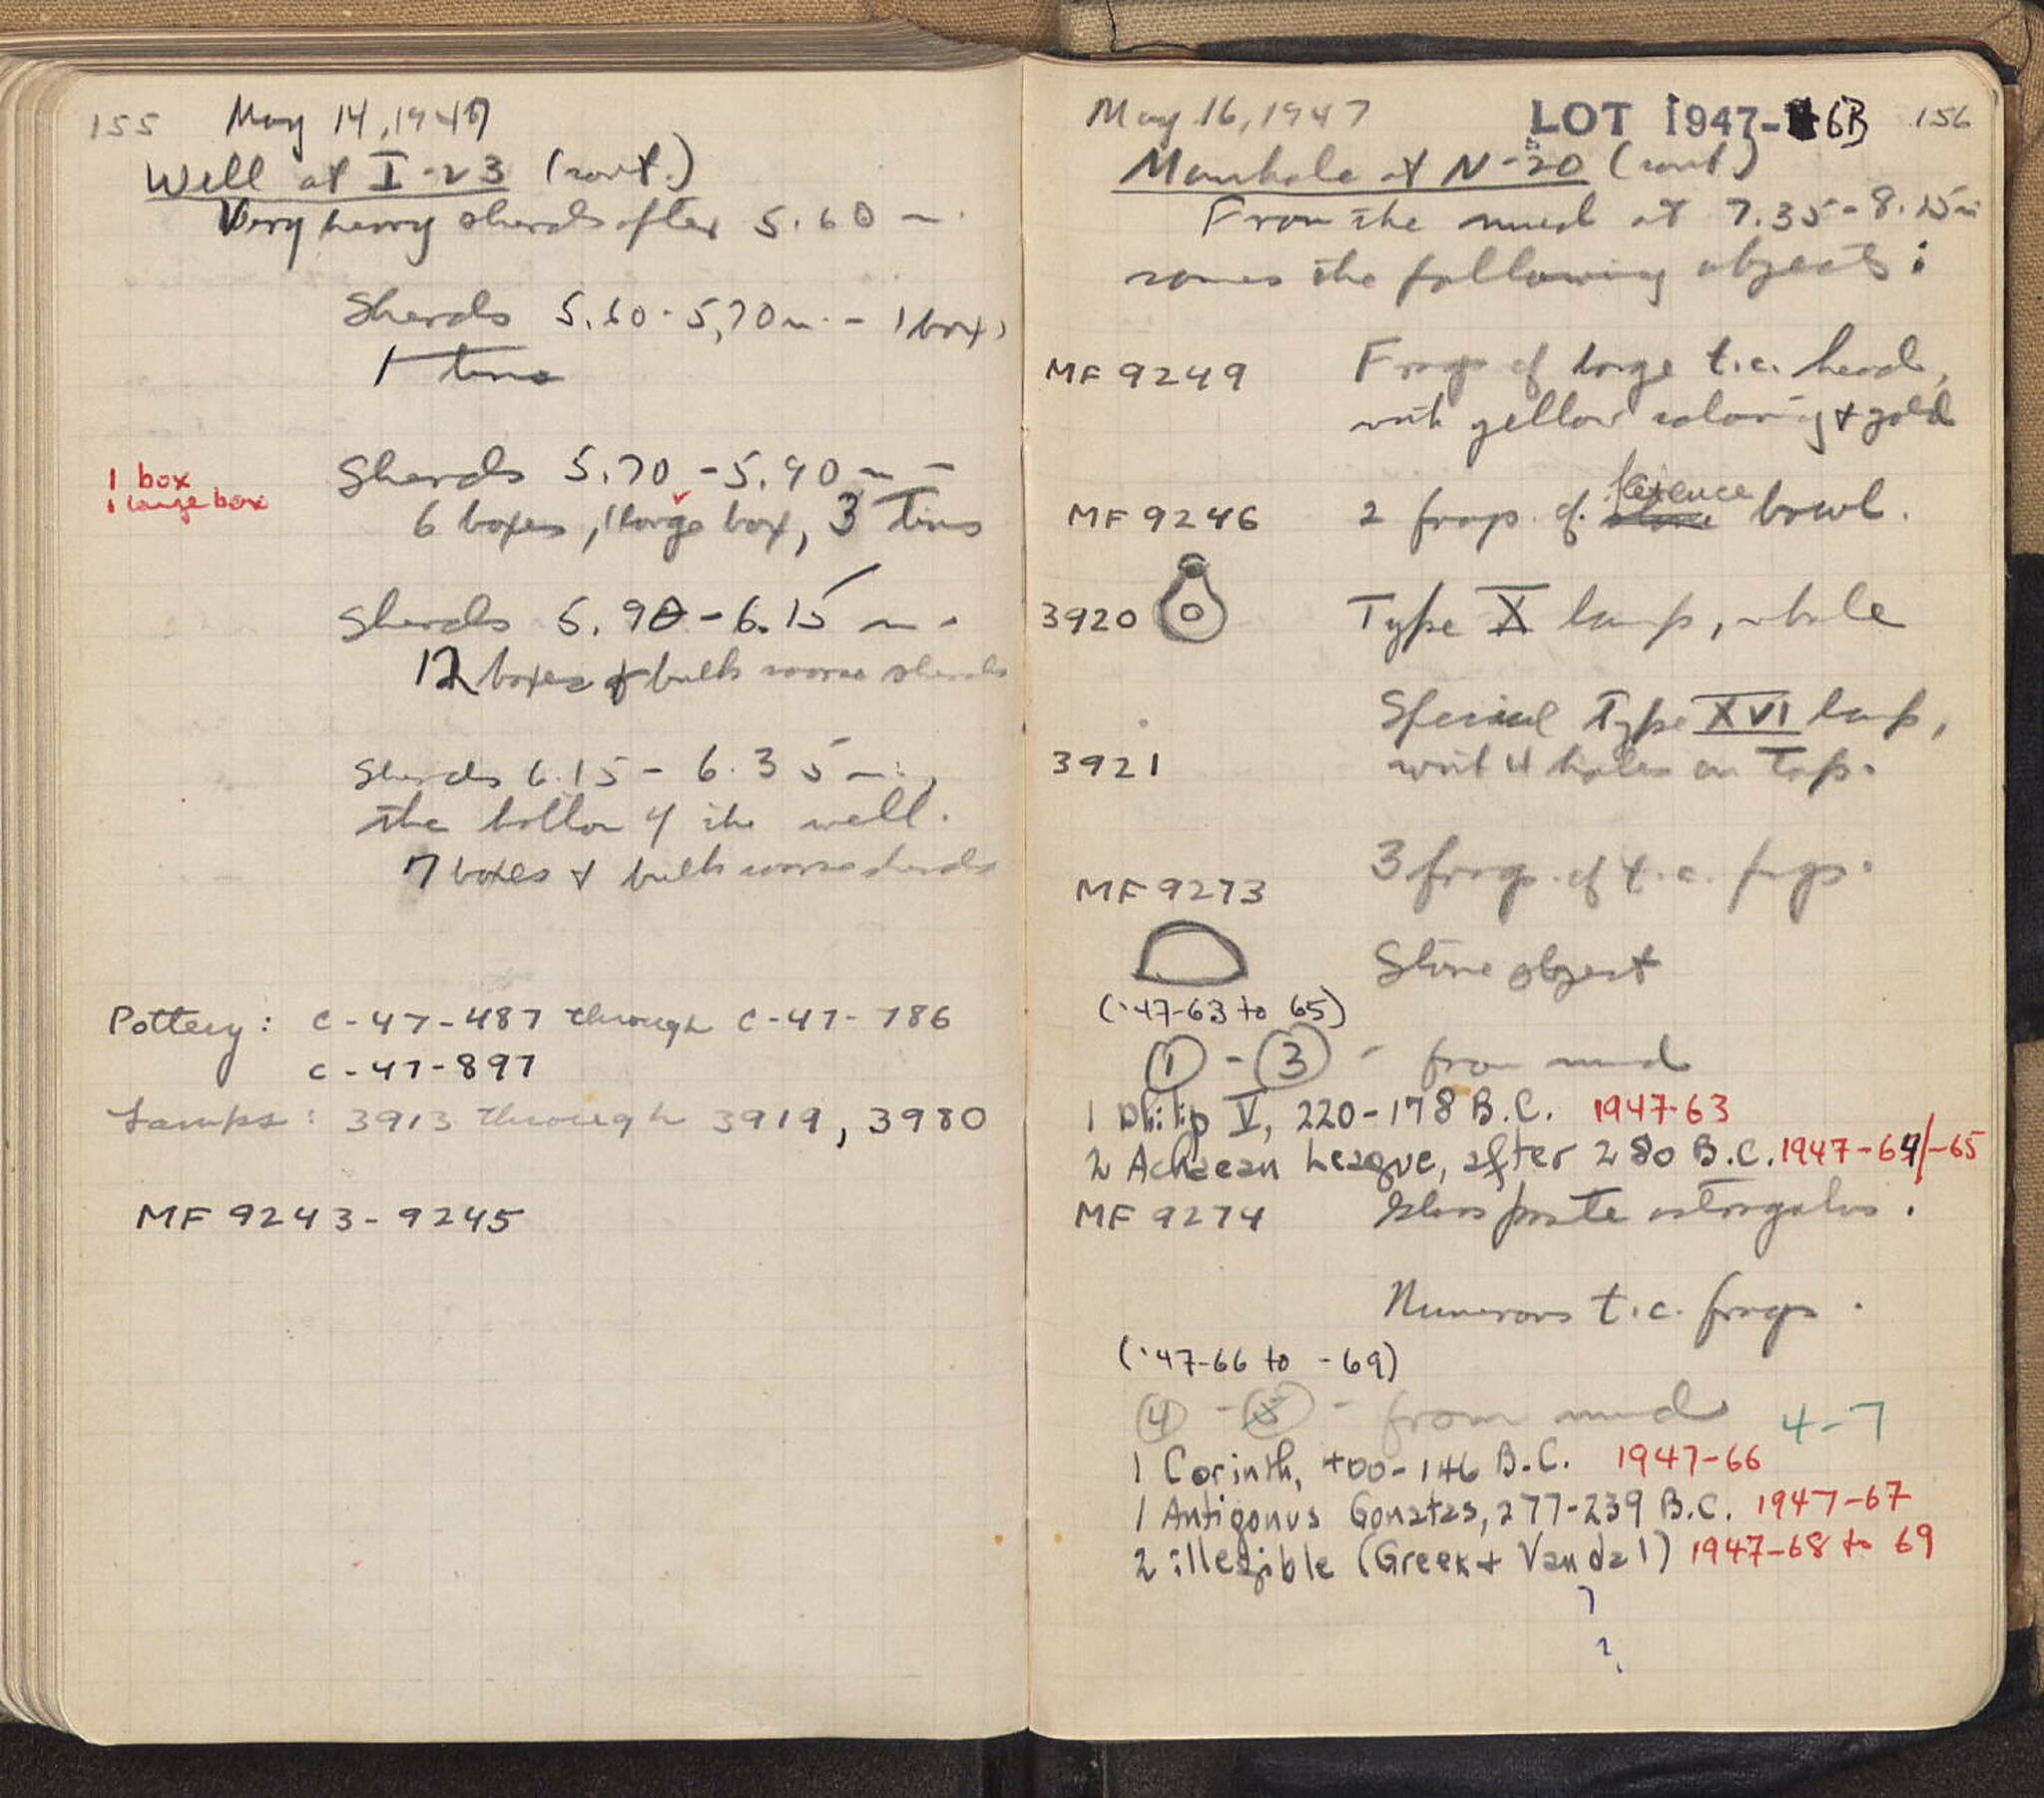 155 May 14, 1947
Well at I-23 (cont.)
Very heavy sherds after 5.60 m.
Sherds 5.60-5.70 m. - 1 box,
1 tins
1 box
1 large box
Sherds 5.70 - 5.90 m -
6 boxes, 1 large box, 3 tins
Sherds 5.90 - 6.15 m.
12 boxes + bulk coarse sherds
Sherds 6.15 - 6.35 m.,
the bottom of the well.
7 boxes + bulk coarse sherds
Pottery: C-47-487 through C-47-786
C-47-897
Lamps: 3913 through 3919, 3980
MF 9243-9245
May 16, 1947 LOT 1947-6B 156
Manhole at N-20 (cont.)
From the mud at 7.35-8.15 m
comes the following objects:
MF 9249 Frags of large t.c. head,
with yellow coloring + gold
MF 9246 2 frags. of stone faience bowl.
3920 Type X lamp, whole
Special Type XVI lamp,
3921 with 4 holes on top.
MF 9273 3 frags. of t.c. figs.
Stone object
('47-63 to 65)
1 - 3 - from mud
1 Philip V, 220-178 B.C. 1947-63
2 Achaean League, after 280 B.C. 1947-64/-65
MF 9274 Glass paste astragalus.
Numerous t.c. frags.
('47-66 to -69)
4 - 5 - from mud 4-7
1 Corinth, 400-146 B.C. 1947-66
1 Antigonus Gonatas, 277-239 B.C. 1947-67
2 illegible (Greek + Vandal) 1947-68 to 69
?